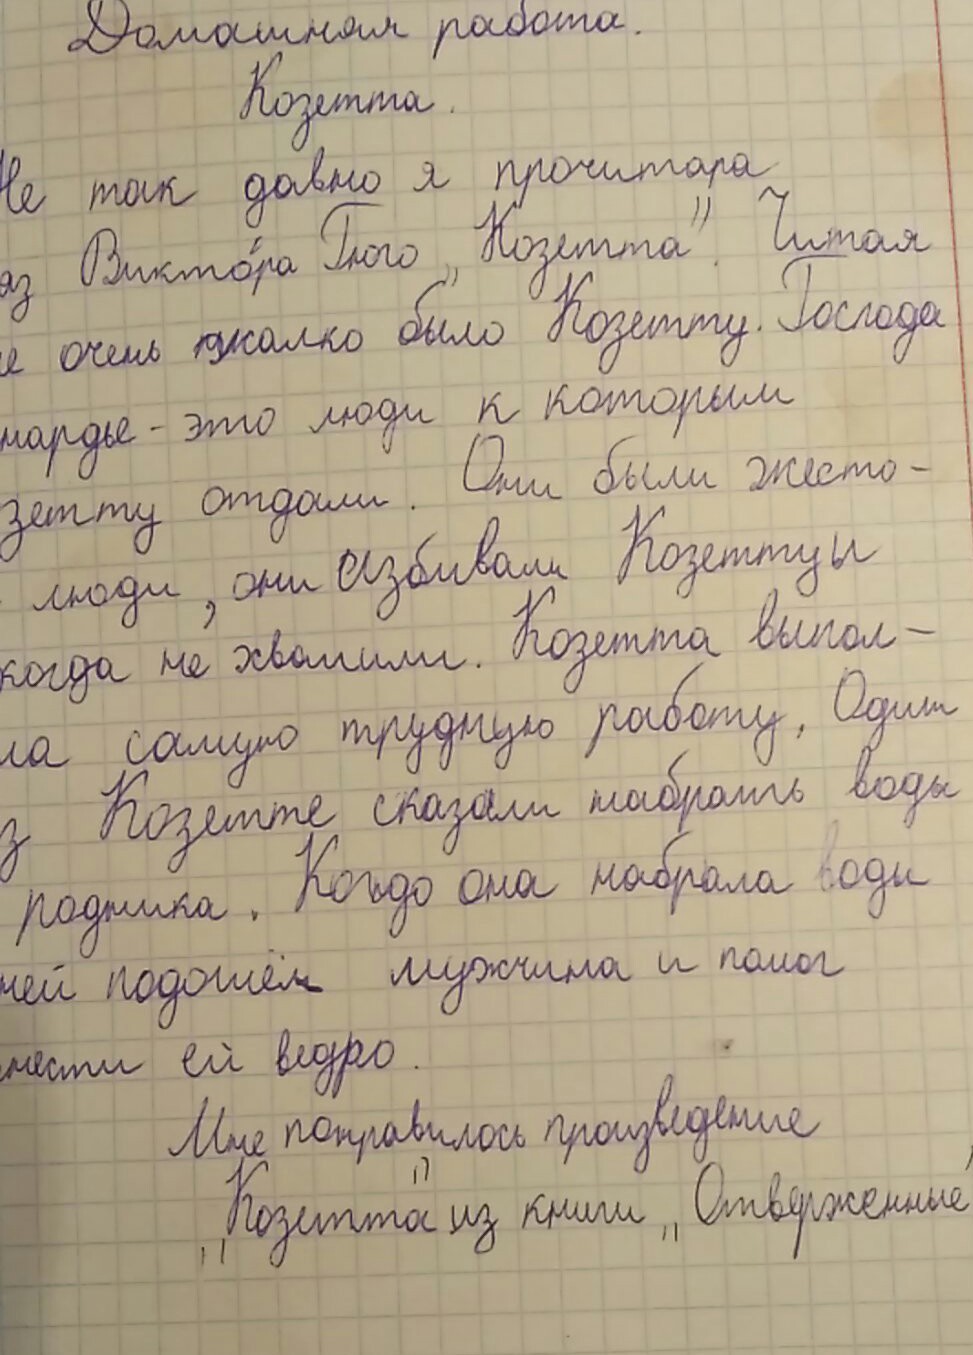 Домашняя работа.
Козетта.
Не так давно я прочитара
аз Виктóра Гюго „Козетта". Читая
е очень жалко было Козетту. Господа
нардье - это люди к которым
зетту отдали. Они были жесто-
люди, они избивали Козетту и
когда не хвалили. Козетта выпол-
ла самую трудную работу. Один
з Козетте сказали набрать воды
родника. Когдо она набрала воды
ней подошёл мужчина и помог
нести ей ведро.
Мне понравилось произведение
„Козетта" из книги „Отверженные"